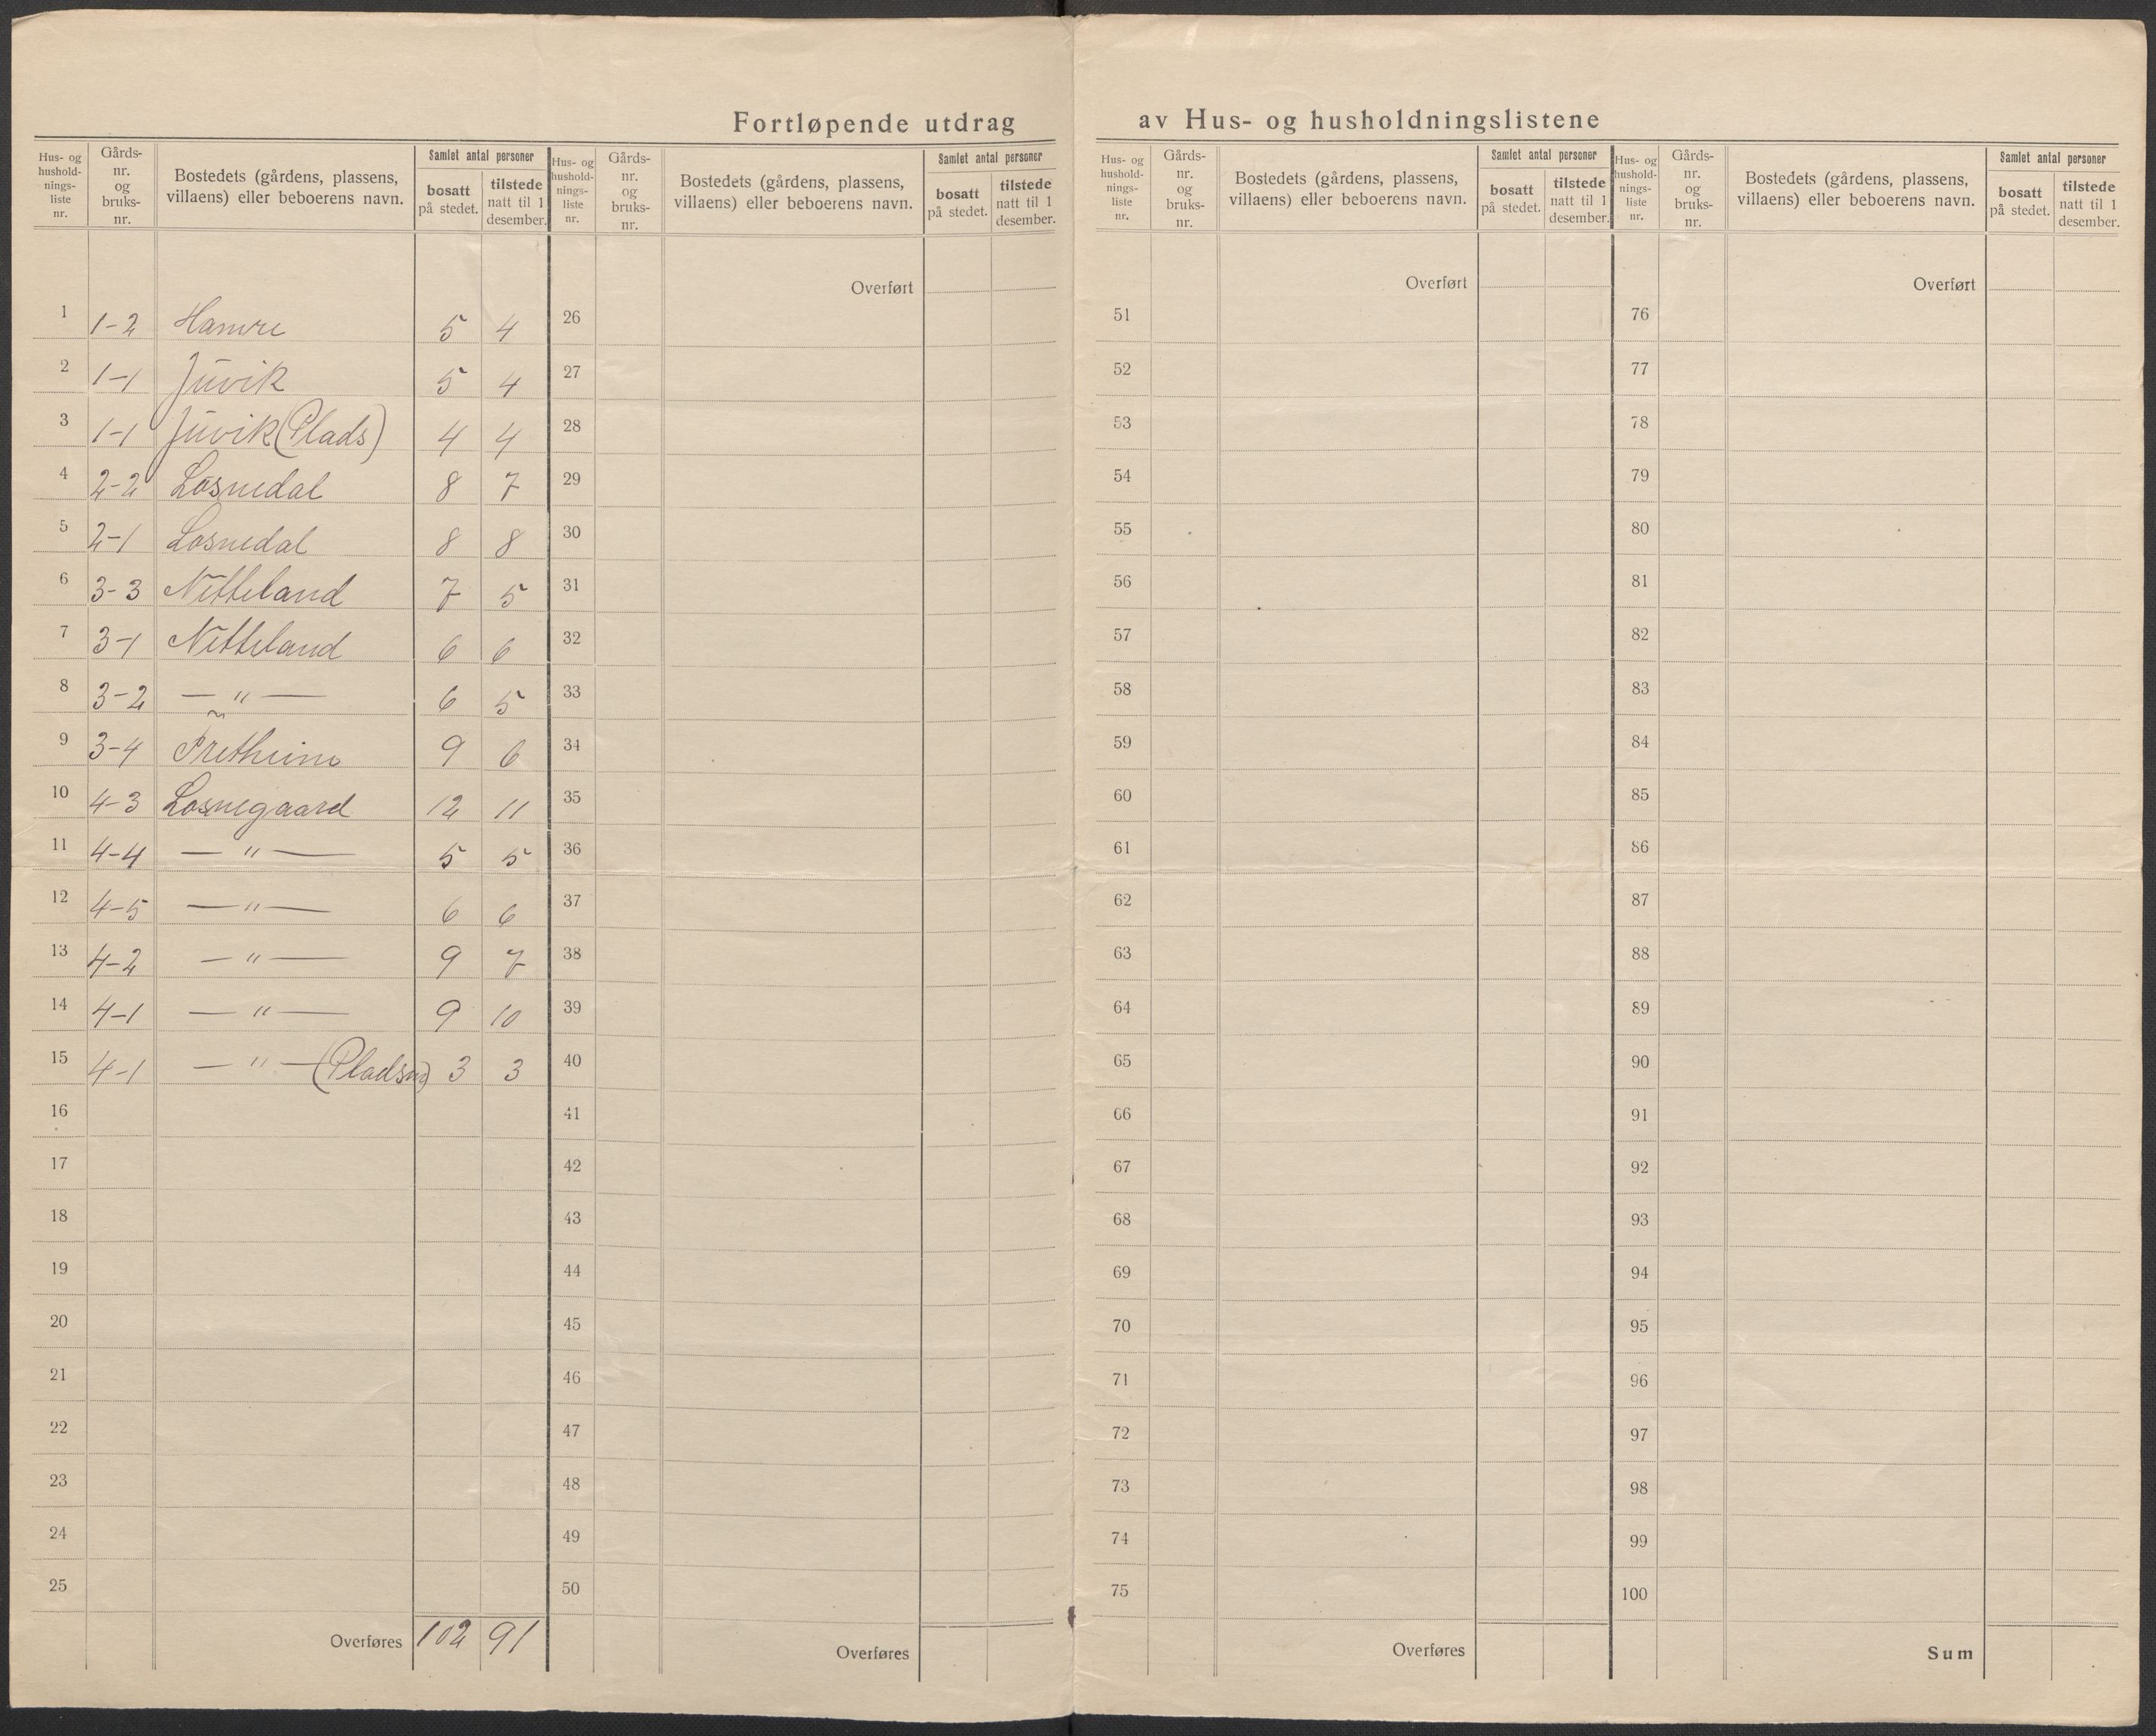 Fortløpende utdrag av Hus- og husholdningslistene
Hus- og hushold-nings-liste nr. Gårds-nr. og bruks-nr. Bostedets (gårdens, plassens, villaens) eller beboerens navn. Samlet antal personer bosatt på stedet. tilstede natt til 1 desember.
1 1-2 Hamre 5 4
2 1-1 Juvik 5 4
3 1-1 Juvik (Plads) 4 4
4 2-2 Losnedal 8 7
5 2-1 Losnedal 8 8
6 3-3 Nitteland 7 5
7 3-1 Nitteland 6 6
8 3-2 —"— 6 5
9 3-4 Fretheim 9 6
10 4-3 Losnegaard 12 11
11 4-4 —"— 5 5
12 4-5 —"— 6 6
13 4-2 —"— 9 7
14 4-1 —"— 9 10
15 4-1 —"— (Pladsen) 3 3
16
17
18
19
20
21
22
23
24
25
Overføres 102 91
Hus- og hushold-nings-liste nr. Gårds-nr. og bruks-nr. Bostedets (gårdens, plassens, villaens) eller beboerens navn. Samlet antal personer bosatt på stedet. tilstede natt til 1 desember.
Overført
26
27
28
29
30
31
32
33
34
35
36
37
38
39
40
41
42
43
44
45
46
47
48
49
50
Overføres
Hus- og hushold-nings-liste nr. Gårds-nr. og bruks-nr. Bostedets (gårdens, plassens, villaens) eller beboerens navn. Samlet antal personer bosatt på stedet. tilstede natt til 1 desember.
Overført
51
52
53
54
55
56
57
58
59
60
61
62
63
64
65
66
67
68
69
70
71
72
73
74
75
Overføres
Hus- og hushold-nings-liste nr. Gårds-nr. og bruks-nr. Bostedets (gårdens, plassens, villaens) eller beboerens navn. Samlet antal personer bosatt på stedet. tilstede natt til 1 desember.
Overført
76
77
78
79
80
81
82
83
84
85
86
87
88
89
90
91
92
93
94
95
96
97
98
99
100
Sum